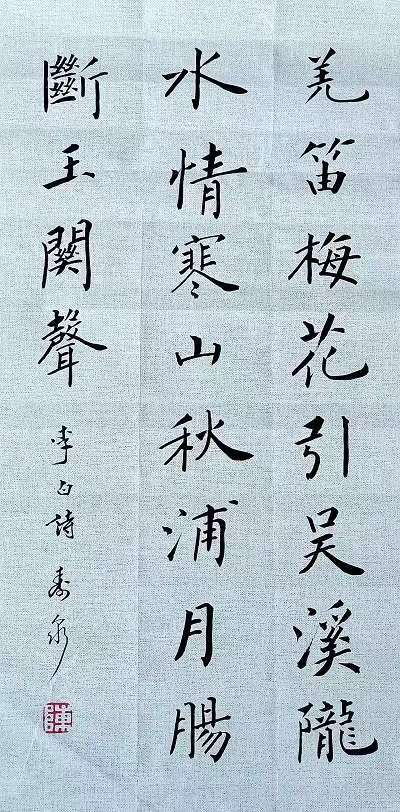 羌笛梅花引吴溪隴
水情寒山秋浦月腸
斷玉關聲
李白詩 壽泉